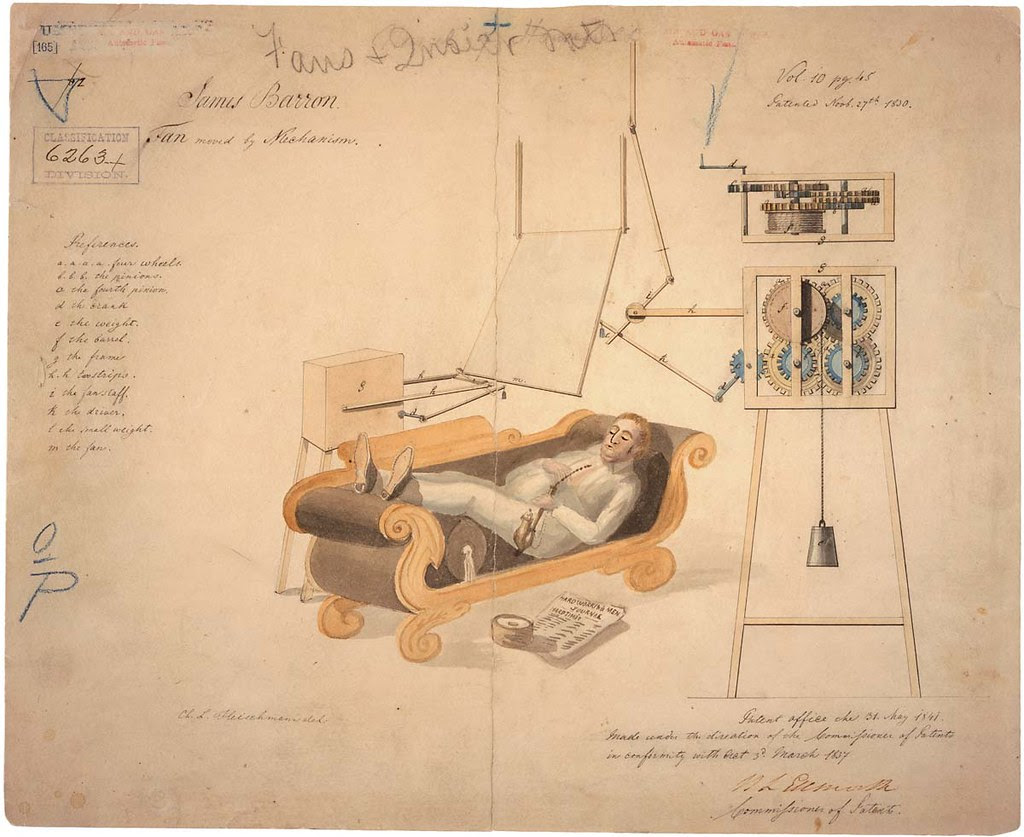 [165]
Fans +
James Barron.
Fan moved by Mechanism.
Vol. 10 pg. 45
Patented Novb. 27th 1830.
CLASSIFICATION
6263+
DIVISION.
References.
a. a. a. a. four wheels.
b. b. b. the pinions.
the fourth pinion.
d the crank
e the weight.
f the barrel.
g the frame
h. h
i the fan staff.
k the driver.
l the small weight.
m the fan.
HARD WORKING MEN
JOURNAL
Ch. L. Fleischmann del.
Patent office the 31. May 1841.
Made under the direction of the Commissioner of Patents
in conformity with Act 3d March 1837
Commissioner of Patents.